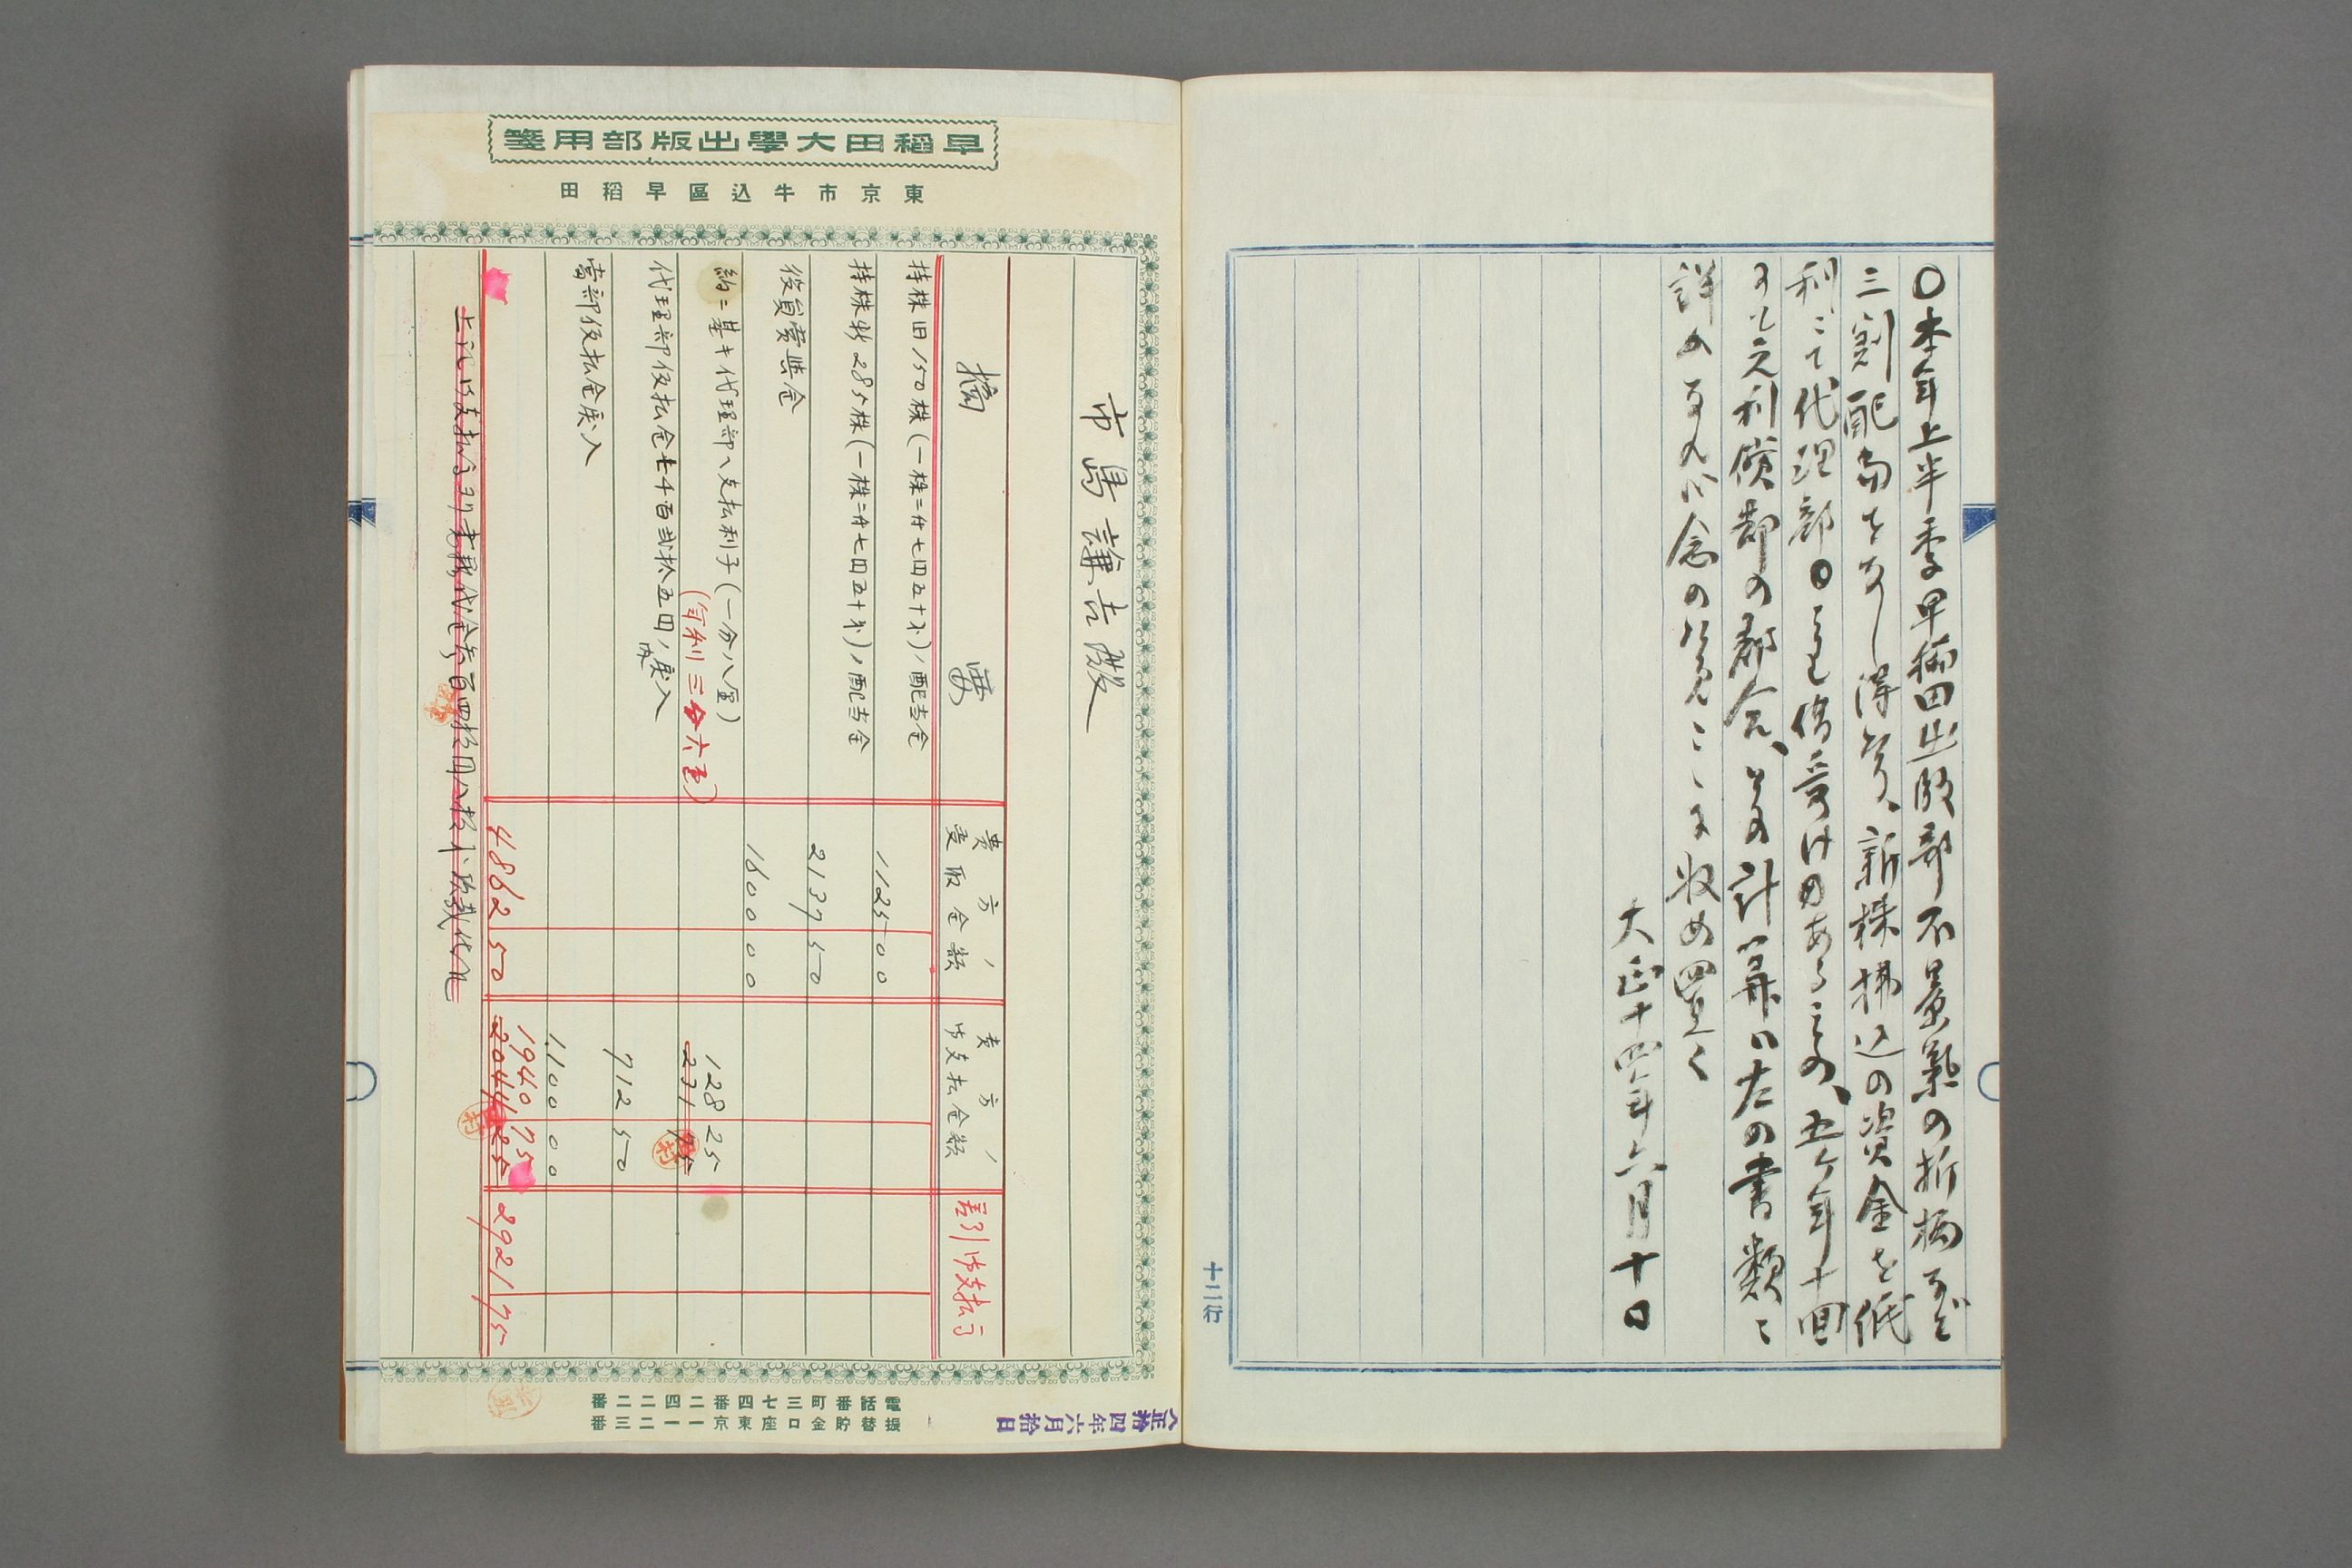 〇本年上半季早稲田出版部不景氣の折柄なるど
三割配当をなし得、新株拂込の資金を低
利ニて代理部より借受け日あるその、五ケ年十回
元利償却の都合、其計算ハ左の書類ニ
詳の念の為こゝに收め置く
大正十四年六月十日
十二行
早稲田大學出版部用箋
東京市牛込區早稲田
市島謙吉殿
摘要
貴方ノ受取金額
貴方ノ御支払金額
差引御支払高
持株旧150株(一株ニ付七円五十戔)ノ配当金 1125 00
持株新285株(一株ニ付七円五十戔)ノ配当金 2137 50
役員賞與金 1600 00
約ニ基キ代理部ヘ支払利子(一分八厘) 128 25
(年利三分六厘) 231 75
代理部仮払金七千百弐拾五円ノ内戻入 712 50
當部仮払金戻入 1.100 00
1940 75
4862 50 2044 25 2921 75
電話番町三七四番二四二二番
振替貯金口座東京一一二三番
大正拾四年六月拾日